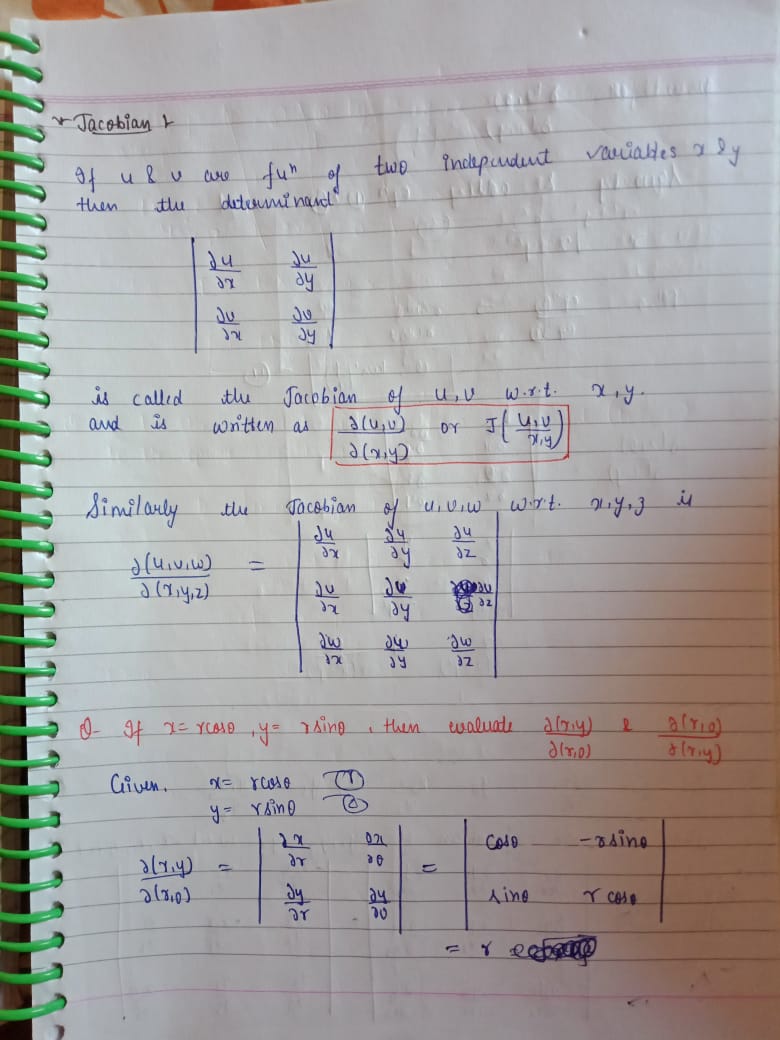 * Jacobian :-
If u & v are fuⁿ of two independent variables x & y
then the determinant
| ∂u/∂x ∂u/∂y |
| ∂v/∂x ∂v/∂y |
is called the Jacobian of u,v w.r.t. x,y.
and is written as ∂(u,v)/∂(x,y) or J(u,v/x,y)
Similarly the Jacobian of u,v,w w.r.t. x,y,z is
∂(u,v,w)/∂(x,y,z) = | ∂u/∂x ∂u/∂y ∂u/∂z |
| ∂v/∂x ∂v/∂y ∂v/∂z |
| ∂w/∂x ∂w/∂y ∂w/∂z |
Q- If x = rcosθ, y = rsinθ, then evaluate ∂(x,y)/∂(r,θ) & ∂(r,θ)/∂(x,y)
Given. x = rcosθ ①
y = rsinθ ②
∂(x,y)/∂(r,θ) = | ∂x/∂r ∂x/∂θ | = | cosθ -rsinθ |
| ∂y/∂r ∂y/∂θ | | sinθ rcosθ |
= r